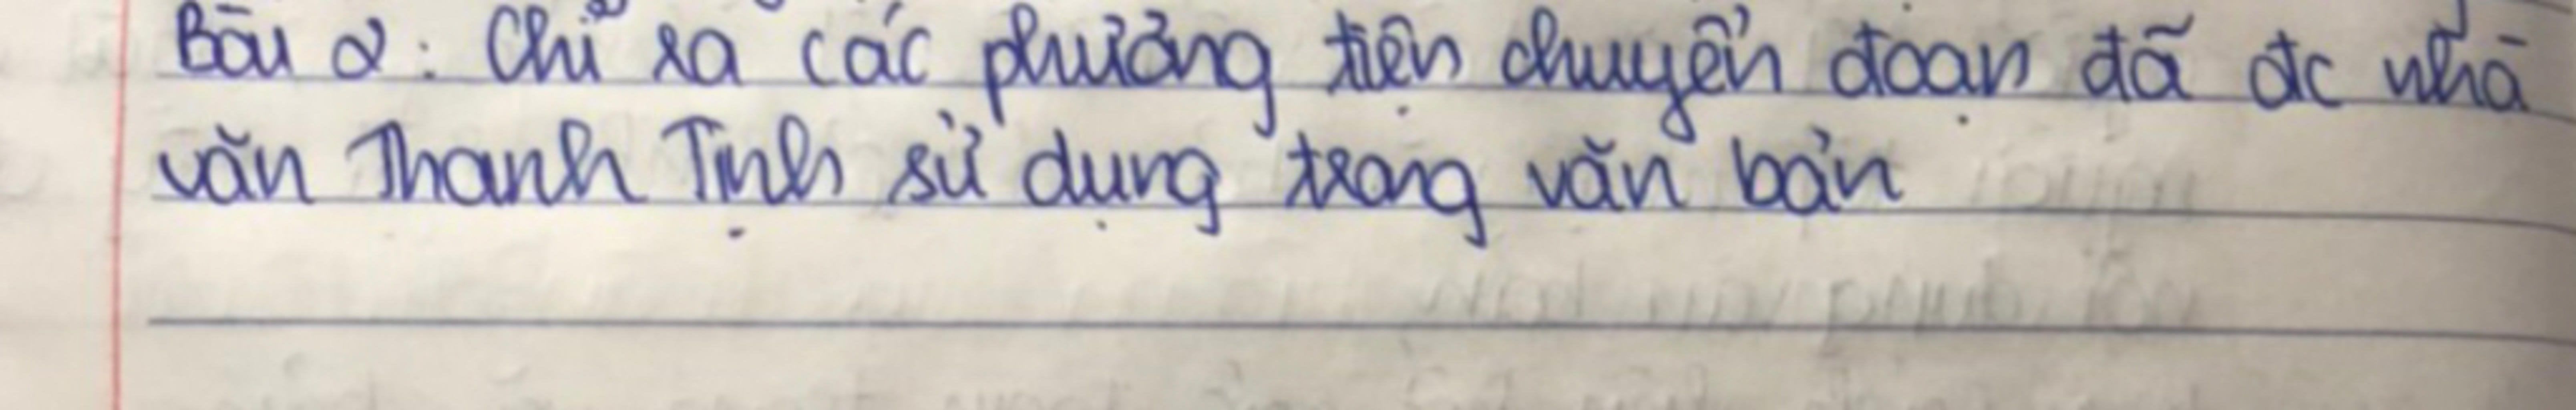 Bài 2: Chỉ ra các phương tiện chuyển đoạn đã đc nhà
văn Thanh Tịnh sử dụng trong văn bản